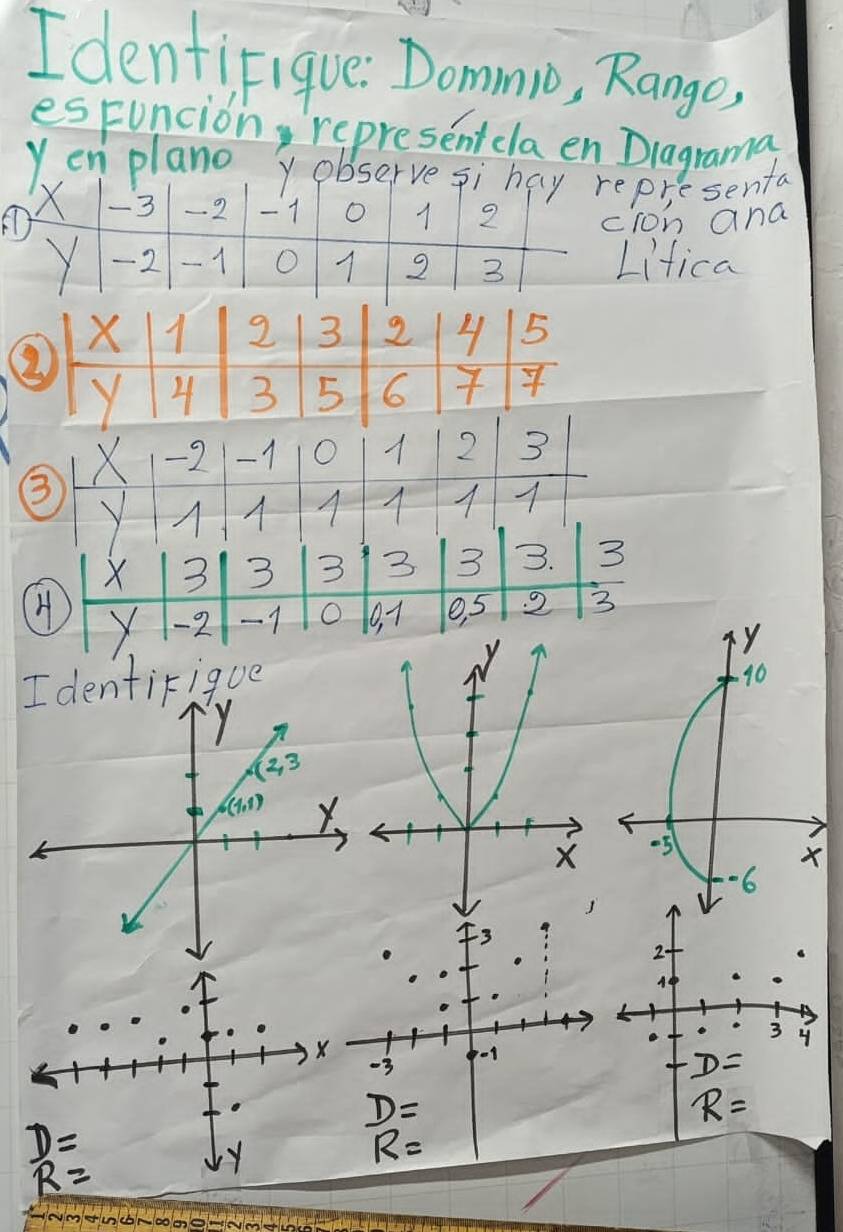 Identifique: Dominio, Rango,
es Función, represéntela en Diagrama
y en plano y observe si hay representa
ción ana
Lítica
① X -3 -2 -1 0 1 2
Y -2 -1 0 1 2 3
② X 1 2 3 2 4 5
Y 4 3 5 6 7 7
③ X -2 -1 0 1 2 3
Y 1 1 1 1 1 1
④ X 3 3 3 3 3 3. 3
Y -2 -1 0 0,1 0,5 2 3
Identifique
Y
(2,3
(1,1)
Y
X
Y
10
-5
-6
X
X
Y
D=
R=
3
-3
-1
D=
R=
2
1
3 4
D=
R=
1 2 3 4 5 6 7 8 9 10 11